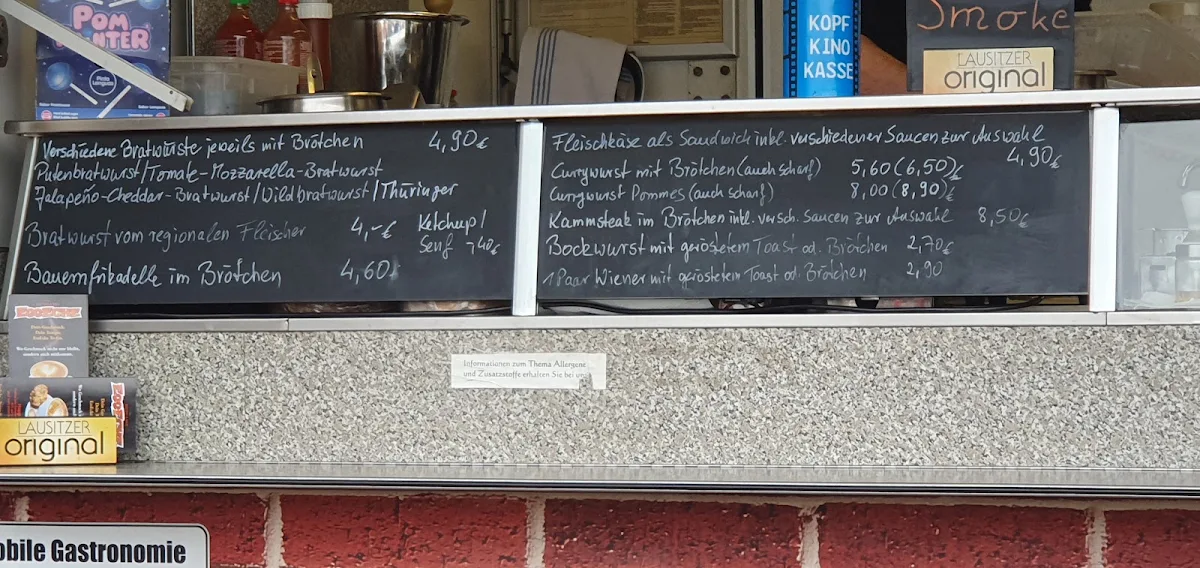 POM
Smoke
KOPF
KINO
KASSE
LAUSITZER
original
Verschiedene Bratwürste jeweils mit Brötchen 4,90€
Putenbratwurst/Tomate-Mozzarella-Bratwurst
Jalapeño-Cheddar-Bratwurst/Wildbratwurst/Thüringer
Bratwurst vom regionalen Fleischer 4,-€
Ketchup/
Senf -,40€
Bauernfrikadelle im Brötchen 4,60
Fleischkäse als Sandwich inkl. verschiedener Saucen zur Auswahl
4,90€
Currywurst mit Brötchen (auch scharf) 5,60 (6,50)€
Currywurst Pommes (auch scharf) 8,00 (8,90)€
Kammsteak im Brötchen inkl. versch. Saucen zur Auswahl 8,50€
Bockwurst mit geröstetem Toast od. Brötchen 2,70€
1 Paar Wiener mit geröstetem Toast od. Brötchen 2,90
Informationen zum Thema Allergene
und Zusatzstoffe erhalten Sie bei uns
LAUSITZER
original
obile Gastronomie